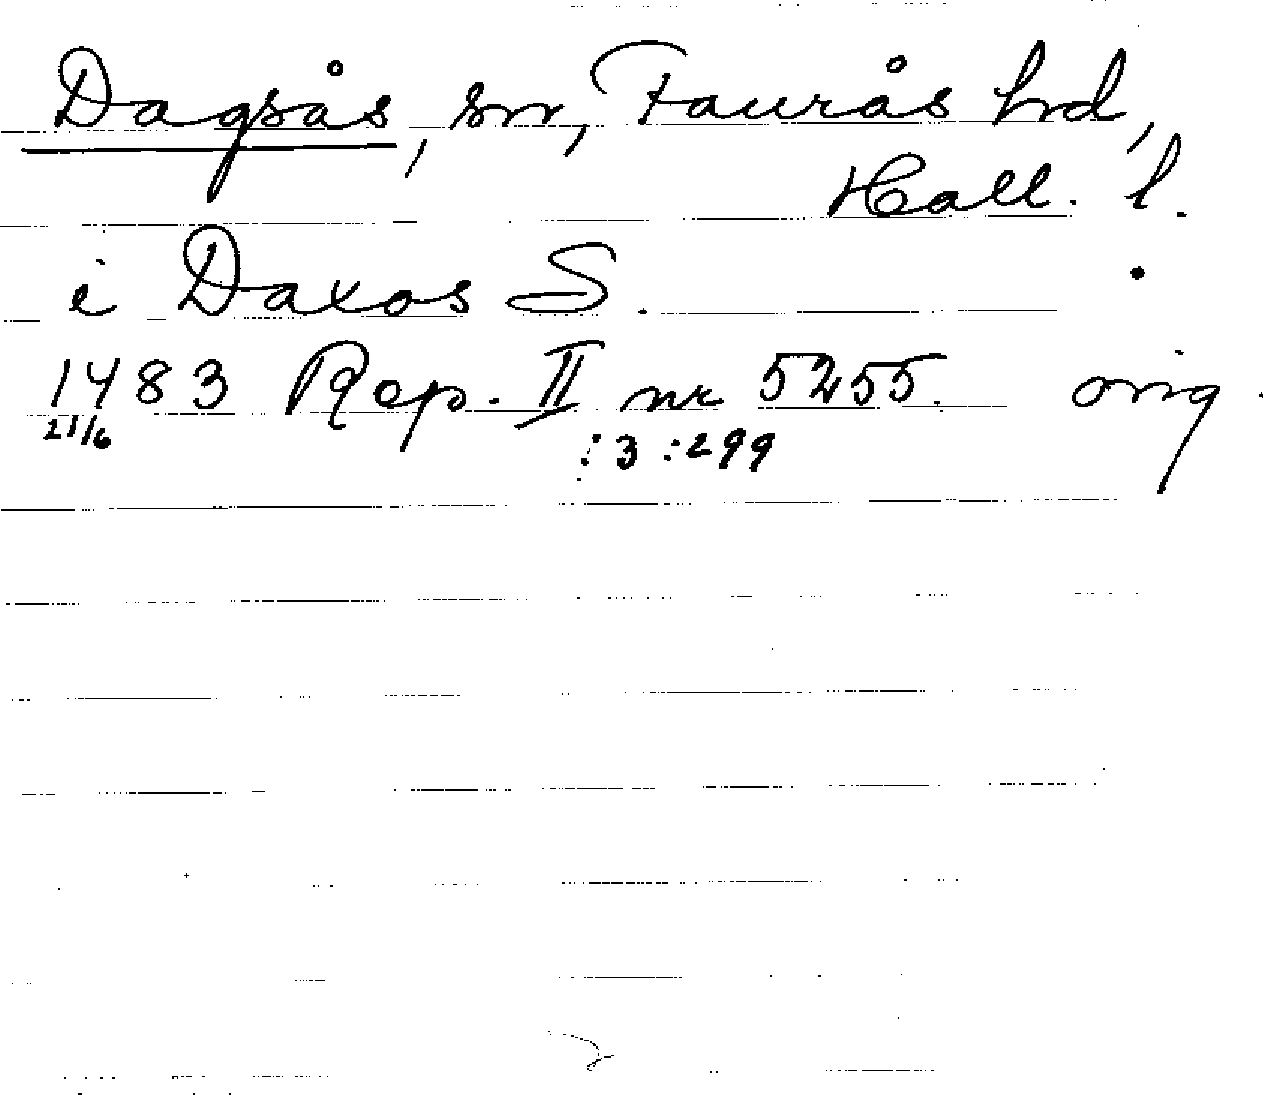 Dagsås, sn, Faurås hd,
Hall. l.
i Daxos S.
1483 Rep. II nr 5255. orig.
21/6 :3 :299